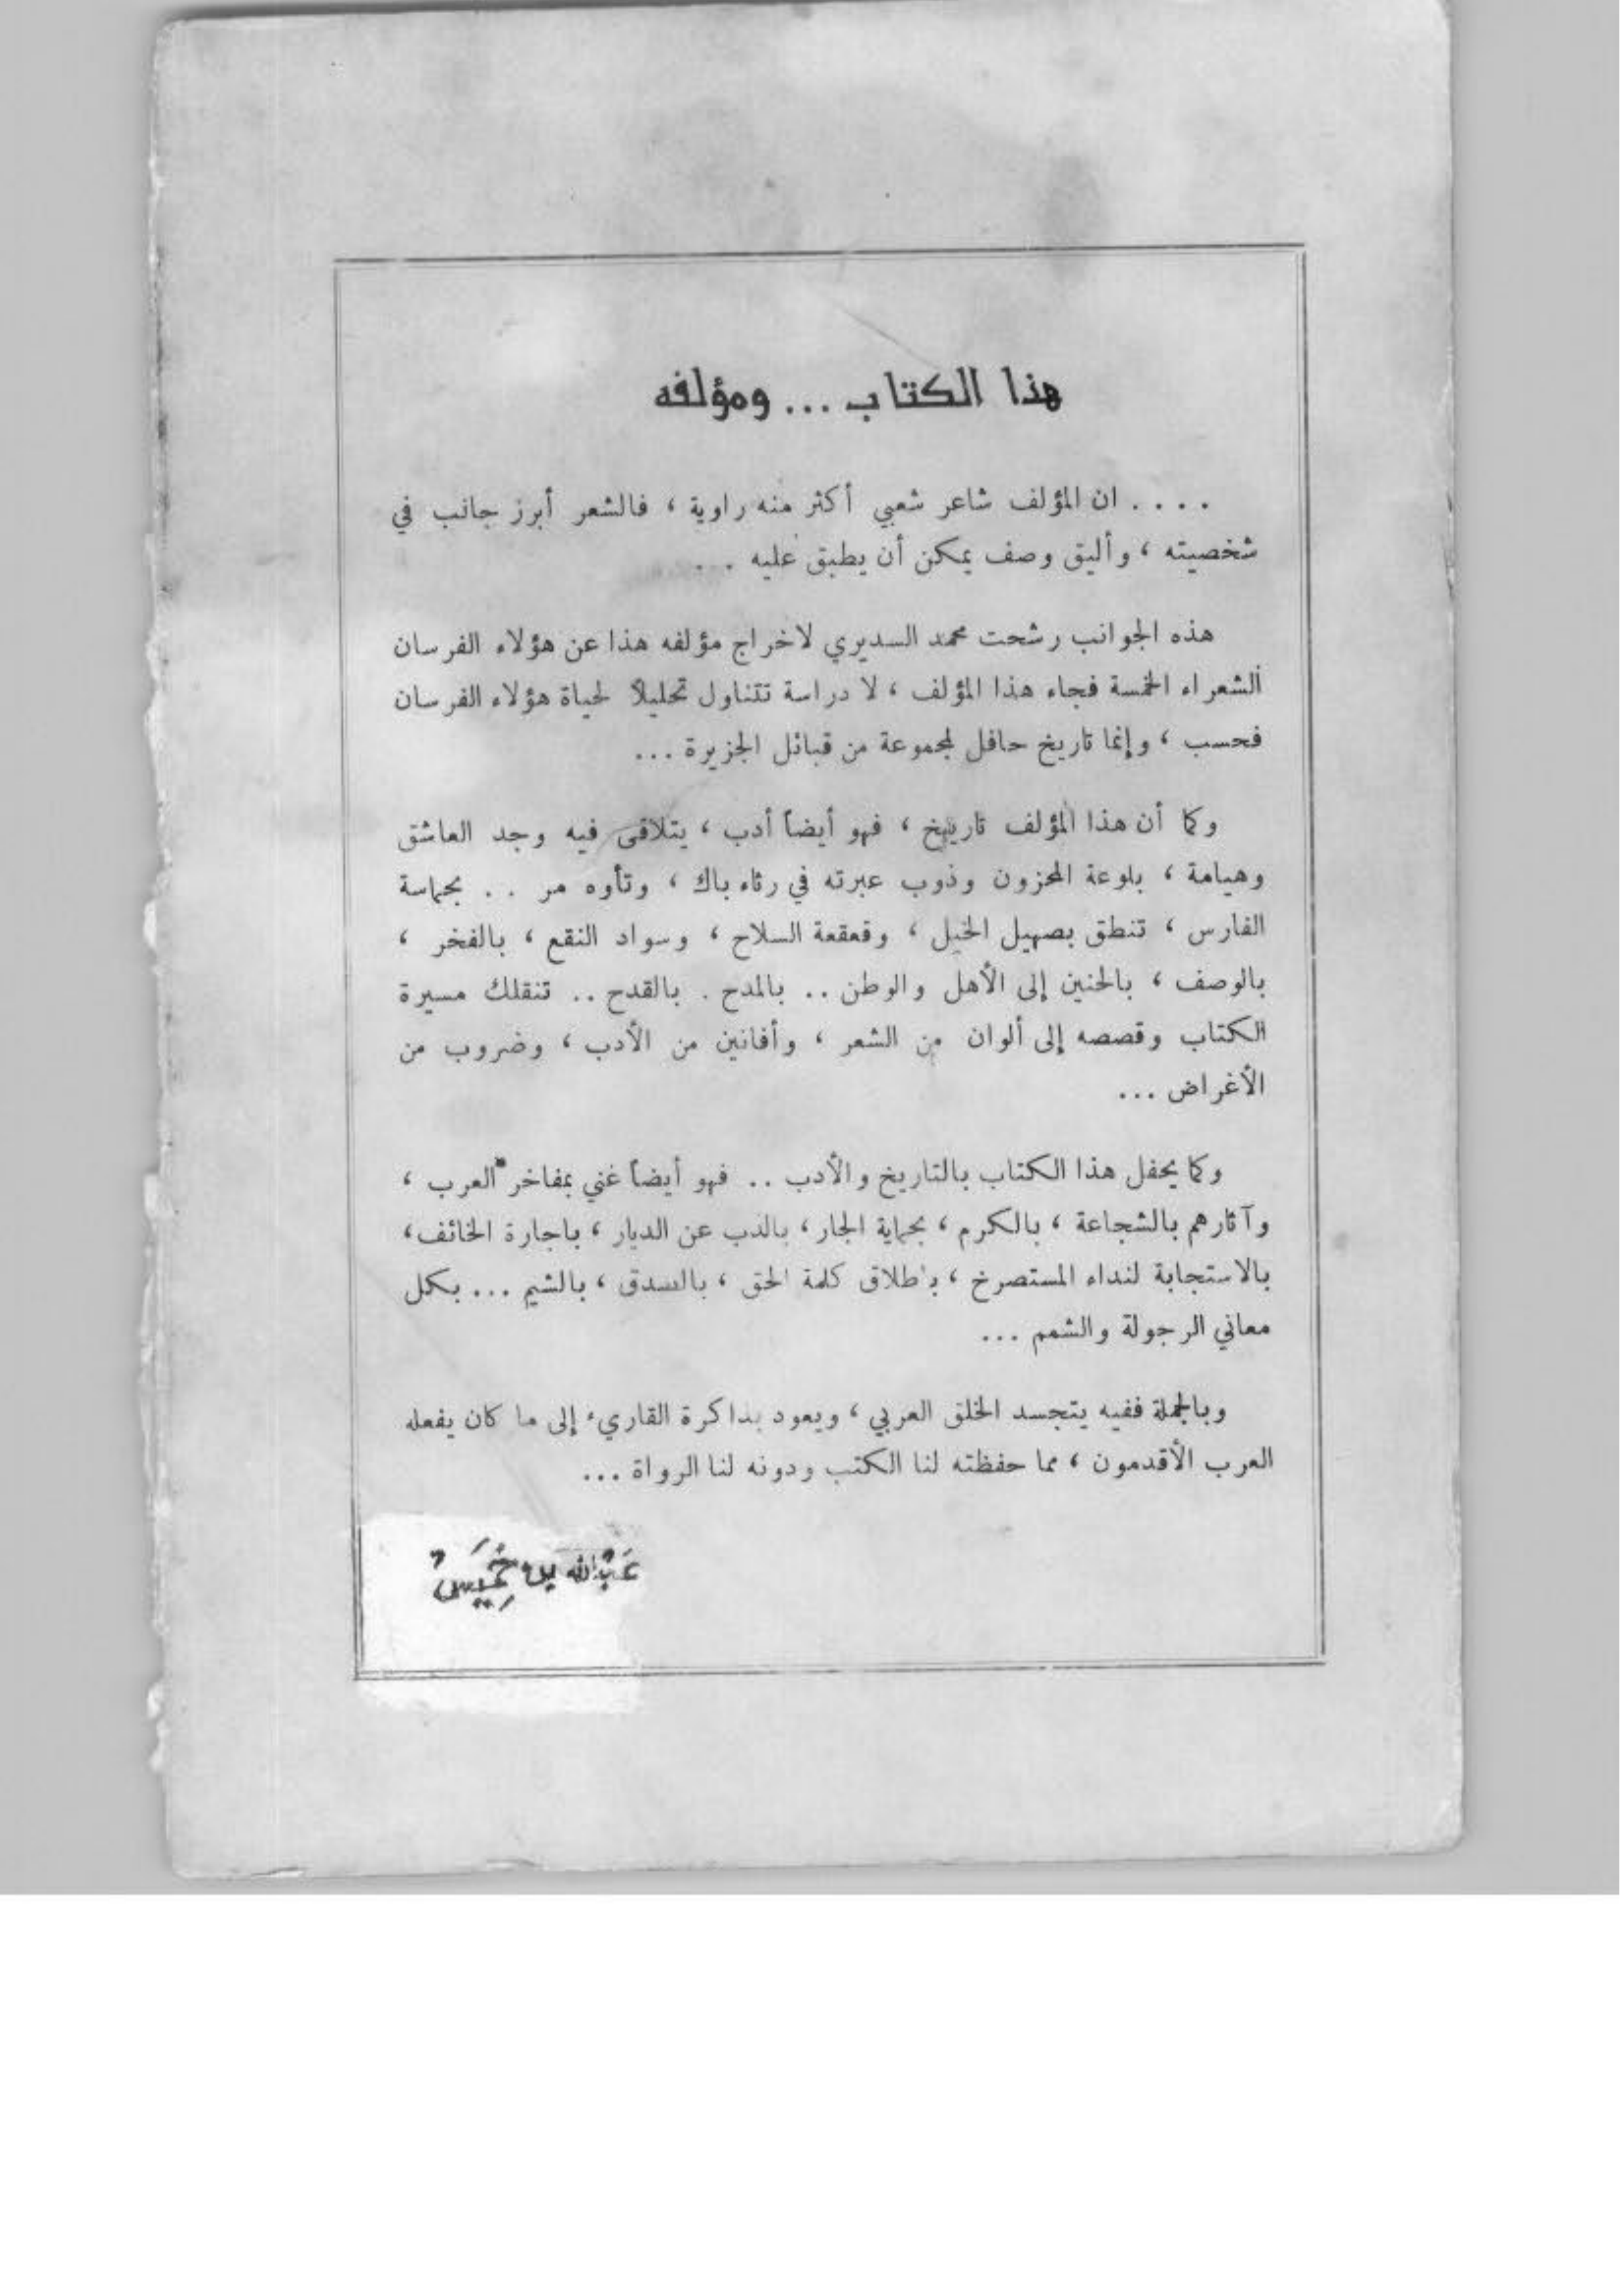 هذا الكتاب ... ومؤلفه
.... ان المؤلف شاعر شعبي أكثر منه راوية ، فالشعر أبرز جانب في
شخصيته ، وأليق وصف يمكن أن يطبق عليه ...
هذه الجوانب رشحت محمد السديري لاخراج مؤلفه هذا عن هؤلاء الفرسان
الشعراء الخمسة فجاء هذا المؤلف ، لا دراسة تتناول تحليلاً لحياة هؤلاء الفرسان
فحسب ، وإنما تاريخ حافل لمجموعة من قبائل الجزيرة ...
وكما أن هذا المؤلف تاريخ ، فهو أيضاً أدب ، يتلاقى فيه وجد العاشق
وهيامة ، بلوعة المحزون وذوب عبرته في رثاء باك ، وتأوه مر .. بحماسة
الفارس ، تنطق بصهيل الخيل ، وقعقعة السلاح ، وسواد النقع ، بالفخر ،
بالوصف ، بالحنين إلى الأهل والوطن .. بالمدح . بالقدح .. تنقلك مسيرة
الكتاب وقصصه إلى ألوان من الشعر ، وأفانين من الأدب ، وضروب من
الأغراض ...
وكما يحفل هذا الكتاب بالتاريخ والأدب .. فهو أيضاً غني بمفاخر العرب ،
وآثارهم بالشجاعة ، بالكرم ، بحماية الجار ، بالذب عن الديار ، باجارة الخائف ،
بالاستجابة لنداء المستصرخ ، باطلاق كلمة الحق ، بالصدق ، بالشيم ... بكل
معاني الرجولة والشمم ...
وبالجملة ففيه يتجسد الخلق العربي ، ويعود بذاكرة القاريء إلى ما كان يفعله
العرب الأقدمون ، مما حفظته لنا الكتب ودونه لنا الرواة ...
عَبْدالله بن خَمِيَسْ